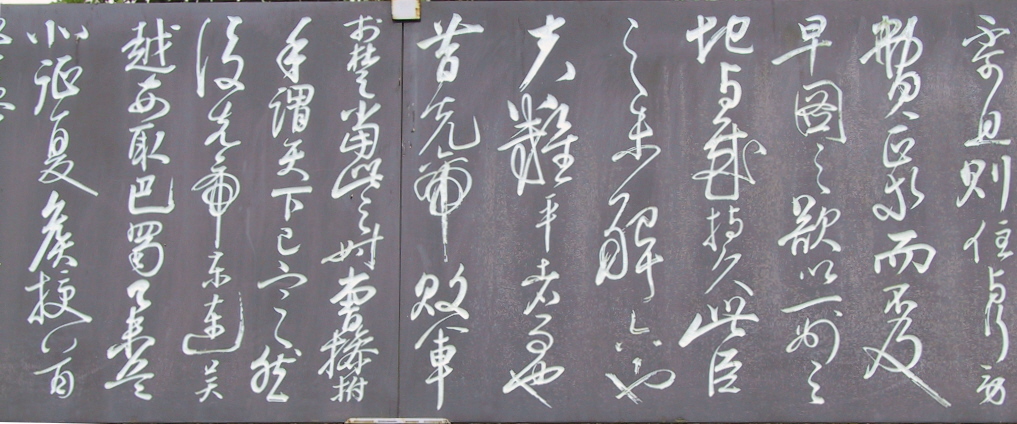 可息則住与行劳
費正等而不及
早圖之欲以一州之
地与賊持久此臣
之未解六也
夫難平者事也
昔先帝敗軍
於楚當此之时曹操拊
手謂天下已定然
後先帝东連吴
越西取巴蜀舉兵
北征夏侯授首